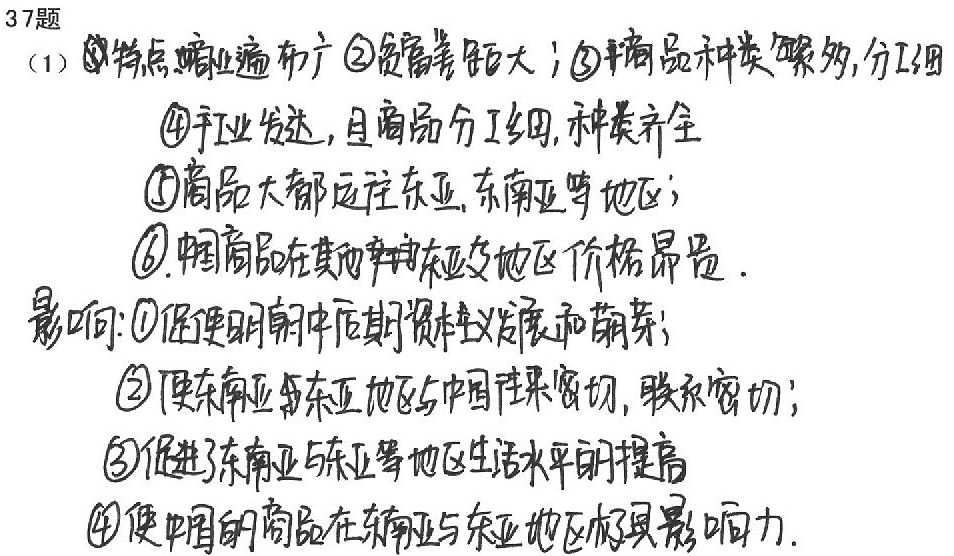 37题
(1) ①特点:商业遍布广 ②贫富差距大；③商品种类繁多,分工细
④手工业发达,且商品分工细,种类齐全
⑤商品大都运往东亚、东南亚等地区；
⑥.中国商品在其他东亚及地区价格昂贵.
影响:①促使明朝中后期资本主义发展和萌芽；
②使东南亚与东亚地区与中国往来密切,联系密切；
③促进了东南亚与东亚等地区生活水平的提高
④使中国的商品在东南亚与东亚地区极具影响力.